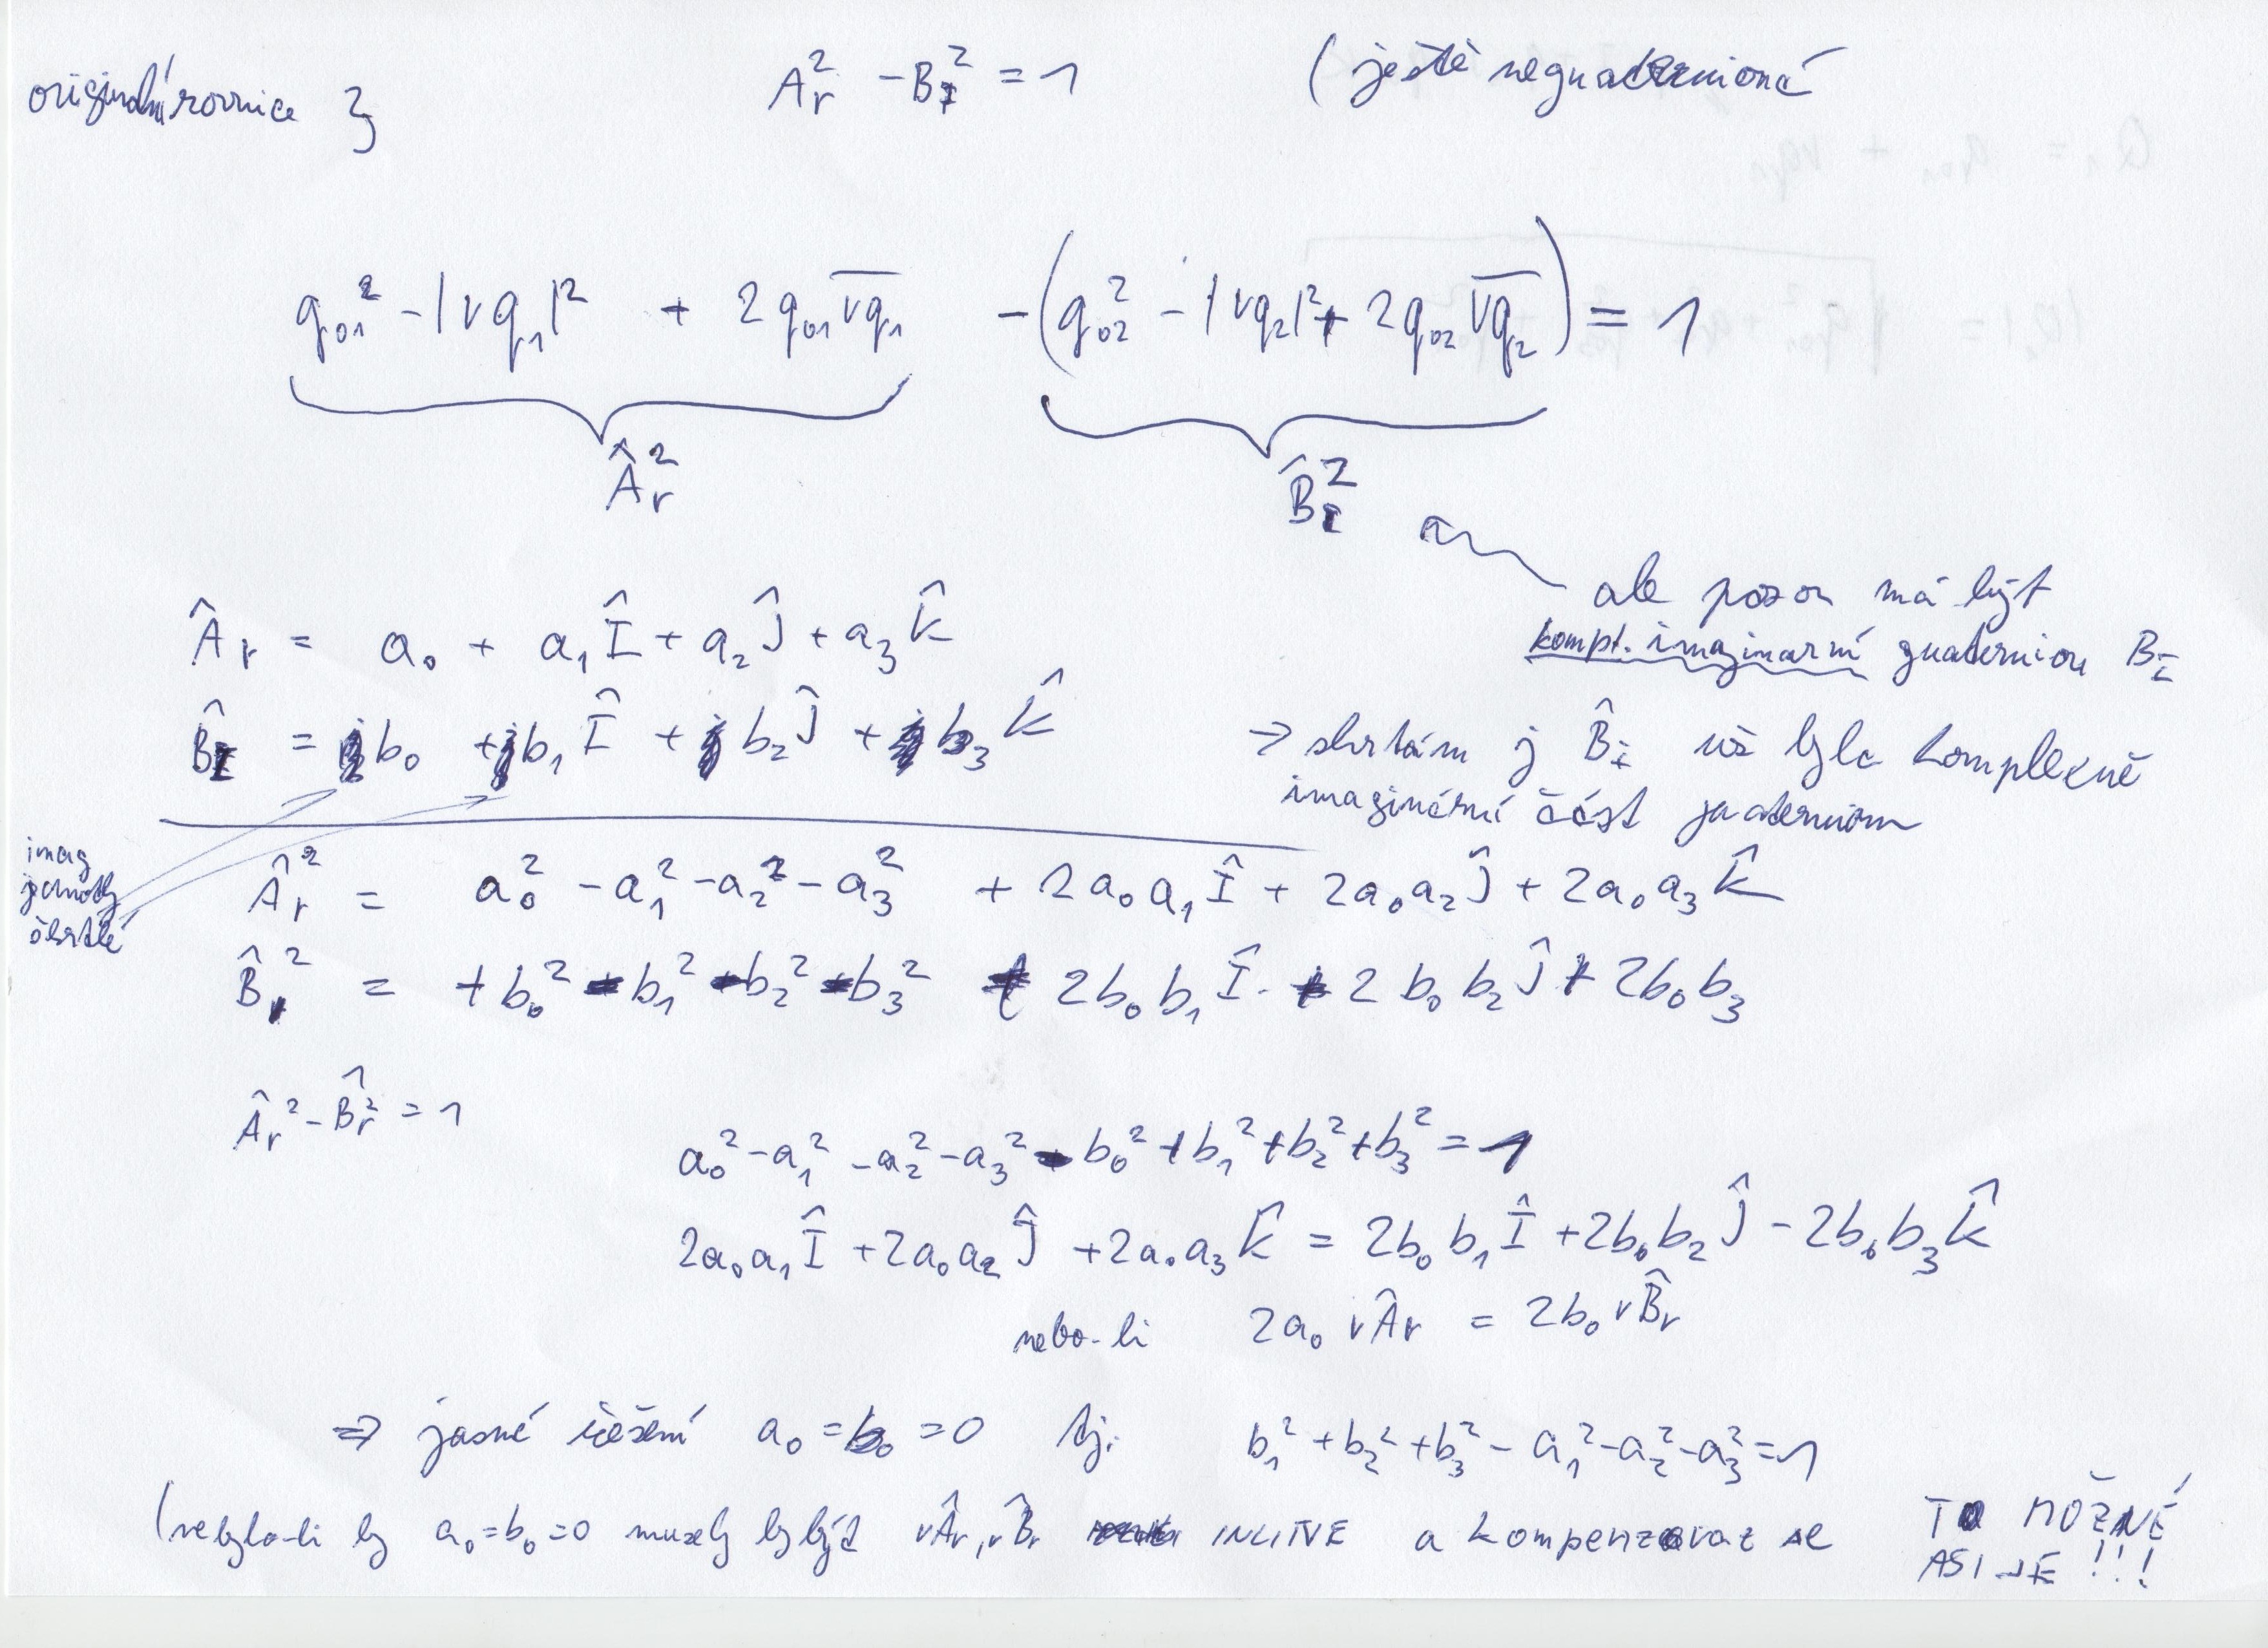 originální rovnice } A_r^2 - B_I^2 = 1 ( ještě neguaternioné
q_01^2 - |vq_1|^2 + 2 q_01 \overline{vq_1} - ( q_02^2 - |vq_2|^2 + 2 q_02 \overline{vq_2} ) = 1
Â_r^2 B̂_I^2
ale pozor má být
kompl. imaginarní guaternion B_I
Â_r = a_0 + a_1 Î + a_2 Ĵ + a_3 K̂
B̂_I = j b_0 + j b_1 Î + j b_2 Ĵ + j b_3 K̂
→ shrtám j B̂_I už byla komplexně
imaginární část guaternionu
imag
jednotky
čkrtlé
Â_r^2 = a_0^2 - a_1^2 - a_2^2 - a_3^2 + 2a_0 a_1 Î + 2a_0 a_2 Ĵ + 2a_0 a_3 K̂
B̂_r^2 = + b_0^2 - b_1^2 - b_2^2 - b_3^2 + 2b_0 b_1 Î + 2 b_0 b_2 Ĵ + 2b_0 b_3
Â_r^2 - B̂_r^2 = 1
a_0^2 - a_1^2 - a_2^2 - a_3^2 - b_0^2 + b_1^2 + b_2^2 + b_3^2 = 1
2a_0 a_1 Î + 2a_0 a_2 Ĵ + 2a_0 a_3 K̂ = 2b_0 b_1 Î + 2b_0 b_2 Ĵ - 2b_0 b_3 K̂
nebo-li 2a_0 vÂ_r = 2b_0 vB̂_r
⇒ jasné řešení a_0 = b_0 = 0 tj. b_1^2 + b_2^2 + b_3^2 - a_1^2 - a_2^2 - a_3^2 = 1
(nebylo-li by a_0 = b_0 = 0 musely by být vÂ_r, vB̂_r a kompenzovat se
TO MOŽNÉ
ASI JE !!!